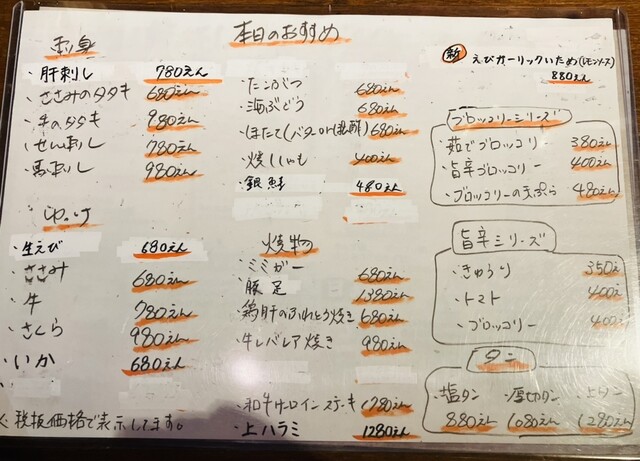 本日のおすすめ
刺身
・肝刺し 780えん
・ささみのタタキ 680えん
・牛のタタキ 980えん
・せんまい刺し 780えん
・馬刺し 980えん
ゆっけ
・生えび 680えん
・ささみ 680えん
・牛 780えん
・さくら 980えん
・いか 680えん
※税抜価格で表示してます。
・たこぶつ 680えん
・海ぶどう 680えん
・ほたて(バターor 680えん
・焼ししゃも 400えん
・銀鮭 480えん
焼物
・ミミガー 680えん
・豚足 1380えん
・鶏肝のふわとろ焼き 680えん
・牛レバレア焼き 980えん
・和牛サーロインステーキ 1780えん
・上ハラミ 1280えん
新 えびガーリックいため(レモンソース)
880えん
ブロッコリーシリーズ
・茹でブロッコリー 380えん
・旨辛ブロッコリー 400えん
・ブロッコリーの天ぷら 480えん
旨辛シリーズ
・きゅうり 350え
・トマト 400え
・ブロッコリー 400え
タン
・塩タン ・厚切タン ・上タン
880えん 1080えん 1280えん